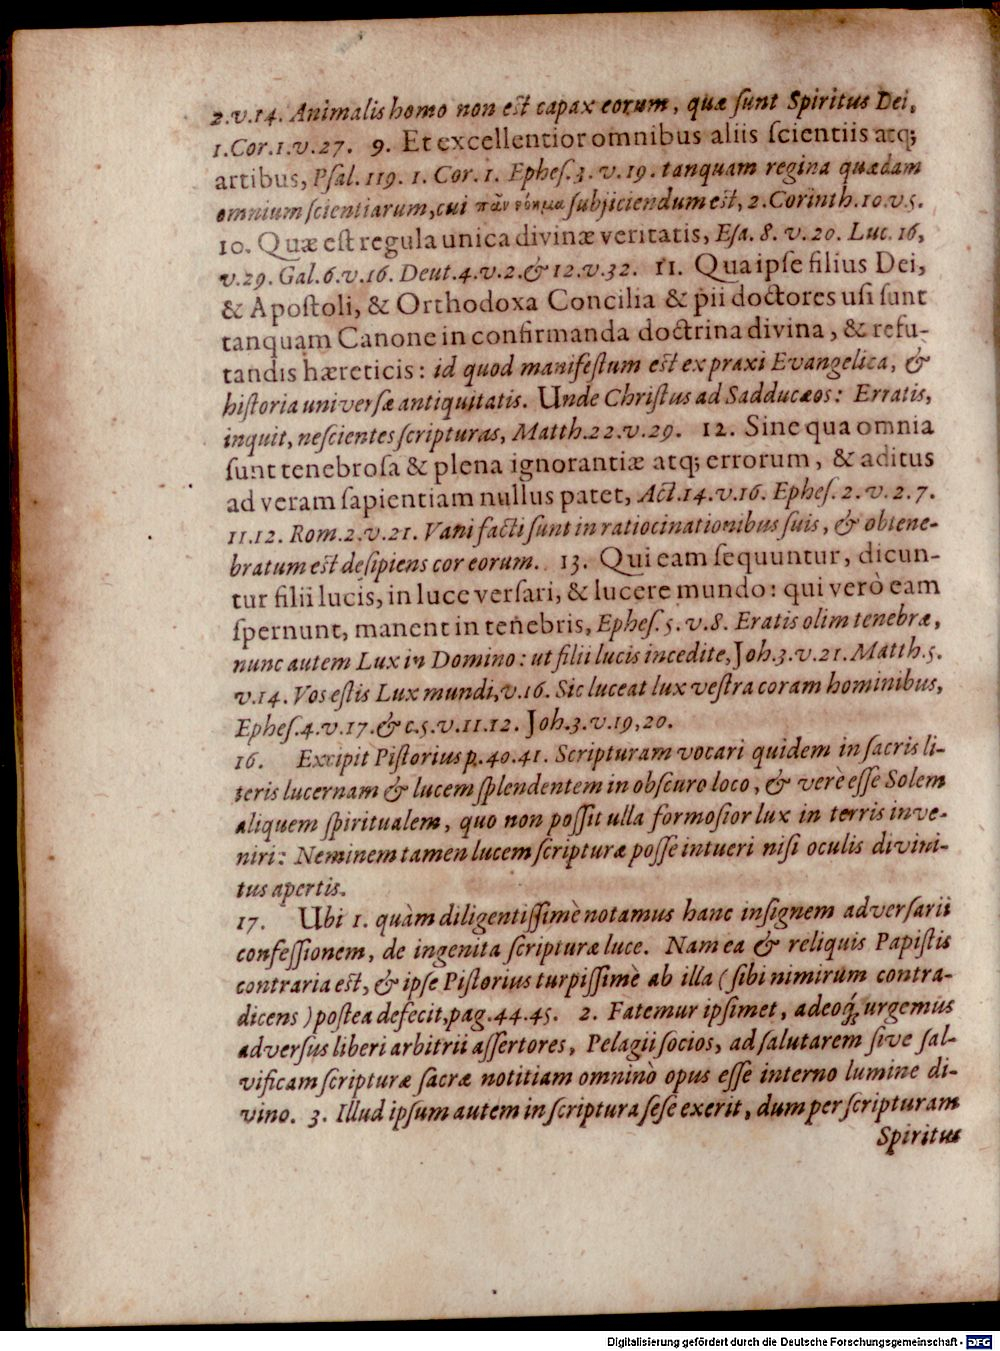 2.v.14. Animalis homo non est capax eorum, quæ ſunt Spiritus Dei,
1.Cor.1.v.27. 9. Et excellentior omnibus aliis ſcientiis atq;
artibus, Pſal.119. 1. Cor. 1. Epheſ.3.v.19. tanquam regina quædam
omnium ſcientiarum, cui πᾶν νόημα ſubjiciendum eſt, 2.Corinth.10.v.5.
10. Quæ eſt regula unica divinæ veritatis, Eſa. 8. v.20. Luc.16,
v.29. Gal.6.v.16. Deut.4.v.2.& 12.v.32. 11. Qua ipſe filius Dei,
& Apoſtoli, & Orthodoxa Concilia & pii doctores uſi ſunt
tanquam Canone in confirmanda doctrina divina, & refu-
tandis hæreticis: id quod manifeſtum eſt ex praxi Evangelica, &
hiſtoria univerſæ antiquitatis. Unde Chriſtus ad Sadducæos: Erratis,
inquit, neſcientes ſcripturas, Matth.22.v.29. 12. Sine qua omnia
ſunt tenebroſa & plena ignorantiæ atq; errorum, & aditus
ad veram ſapientiam nullus patet, Act.14.v.16. Epheſ.2.v.2.7.
11.12. Rom.2.v.21. Vani facti ſunt in ratiocinationibus ſuis, & obtene-
bratum eſt deſipiens cor eorum. 13. Qui eam ſequuntur, dicun-
tur filii lucis, in luce verſari, & lucere mundo: qui verò eam
ſpernunt, manent in tenebris, Epheſ.5.v.8. Eratis olim tenebræ,
nunc autem Lux in Domino: ut filii lucis incedite, Joh.3.v.21. Matth.5.
v.14. Vos eſtis Lux mundi, v.16. Sic luceat lux veſtra coram hominibus,
Epheſ.4.v.17.& c.5.v.11.12. Joh.3.v.19,20.
16. Excipit Piſtorius p.40.41. Scripturam vocari quidem in ſacris li-
teris lucernam & lucem ſplendentem in obſcuro loco, & verè eſſe Solem
aliquem ſpiritualem, quo non poſſit ulla formoſior lux in terris inve-
niri: Neminem tamen lucem ſcripturæ poſſe intueri niſi oculis divini-
tus apertis.
17. Ubi 1. quàm diligentiſſimè notamus hanc inſignem adverſarii
confeſſionem, de ingenita ſcripturæ luce. Nam ea & reliquis Papiſtis
contraria eſt, & ipſe Piſtorius turpiſſimè ab illa (ſibi nimirum contra-
dicens) poſtea defecit, pag.44.45. 2. Fatemur ipſimet, adeoq́; urgemus
adverſus liberi arbitrii aſſertores, Pelagii ſocios, ad ſalutarem ſive ſal-
vificam ſcripturæ ſacræ notitiam omninò opus eſſe interno lumine di-
vino. 3. Illud ipſum autem in ſcriptura ſeſe exerit, dum per ſcripturam
Spiritus
Digitalisierung gefördert durch die Deutsche Forschungsgemeinschaft - DFG